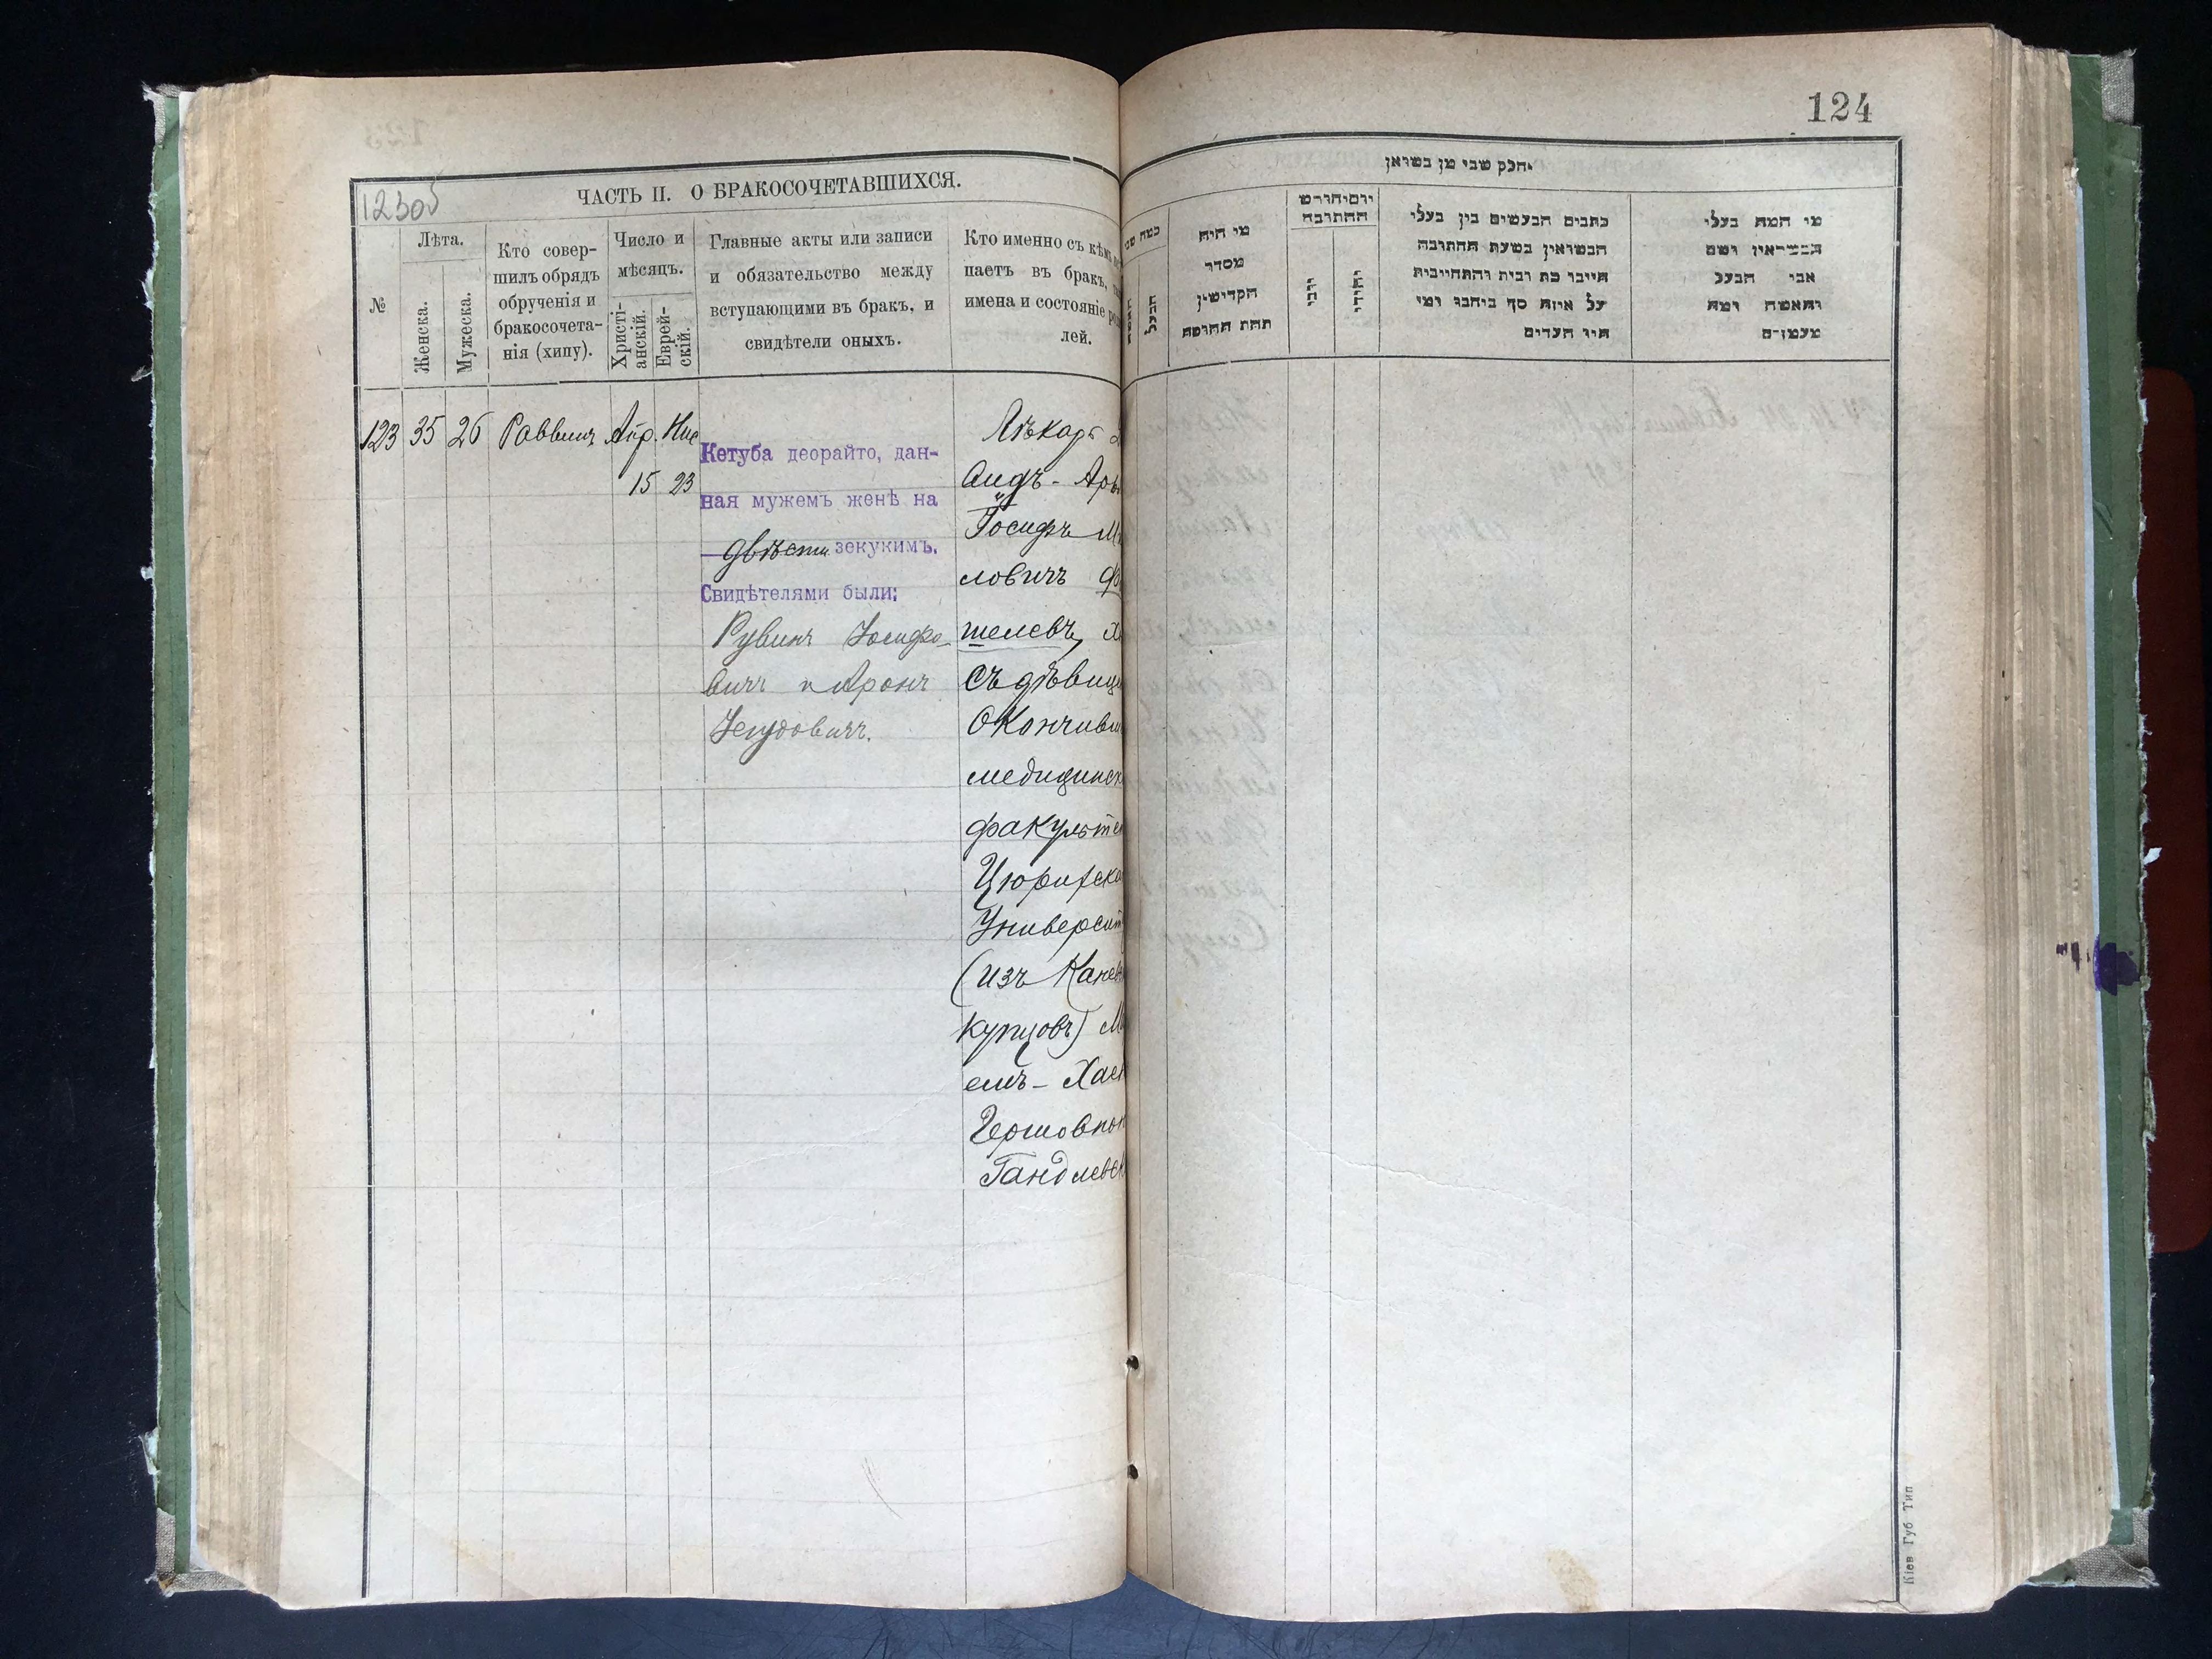 124
12306
ЧАСТЬ II. О БРАКОСОЧЕТАВШИХСЯ.
№
Лѣта.
Женска.
Мужеска.
Кто совер-
шилъ обрядъ
обрученія и
бракосочета-
нія (хипу).
Число и
мѣсяцъ.
Христі-
анскій.
Еврей-
скій.
Главные акты или записи
и обязательство между
вступающими въ брак, и
свидѣтели оныхъ.
Кто именно съ кѣмъ
паетъ въ бракъ,
имена и состояніе
лей.
123 35 26 Раввинъ Апр. Нис
15 23
Кетуба деорайто, дан-
ная мужемъ женѣ на
двѣсти зекукимъ.
Свидѣтелями были:
Рувинъ Іосифо-
вичъ и Аронъ
Іегудовичъ.
Лѣкарь
Аидъ- Арь
Іосифъ
ловичъ
шелевъ,
съ дѣвице
Окончивш
медицинск
факульте
Цюрихско
Университ
(изъ Канев
купцовъ)
емъ- Хаей
Гершовной
Гандлевск
חלק שני מן נשואין
כמה שני
הבעל
מי היה
מסדר
הקדישין
תחת החופה
יום וחודש
החתונה
יוני
יהודי
כתבים הנעשים בין בעלי
הנשואין בשעת החתונה
על איזה סך ניתנו ומי
היו העדים
מי המה בעלי
הנשואין ושם
אבי הבעל
והאשה ומה
מעמדם
Кіев Губ Тип